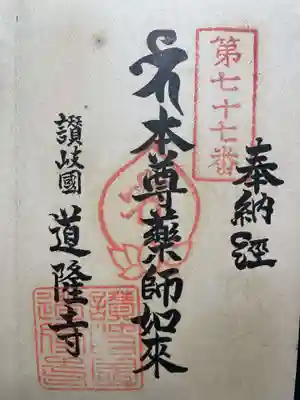 第七十七番
奉納經
本尊藥師如來
讃岐國
道隆寺